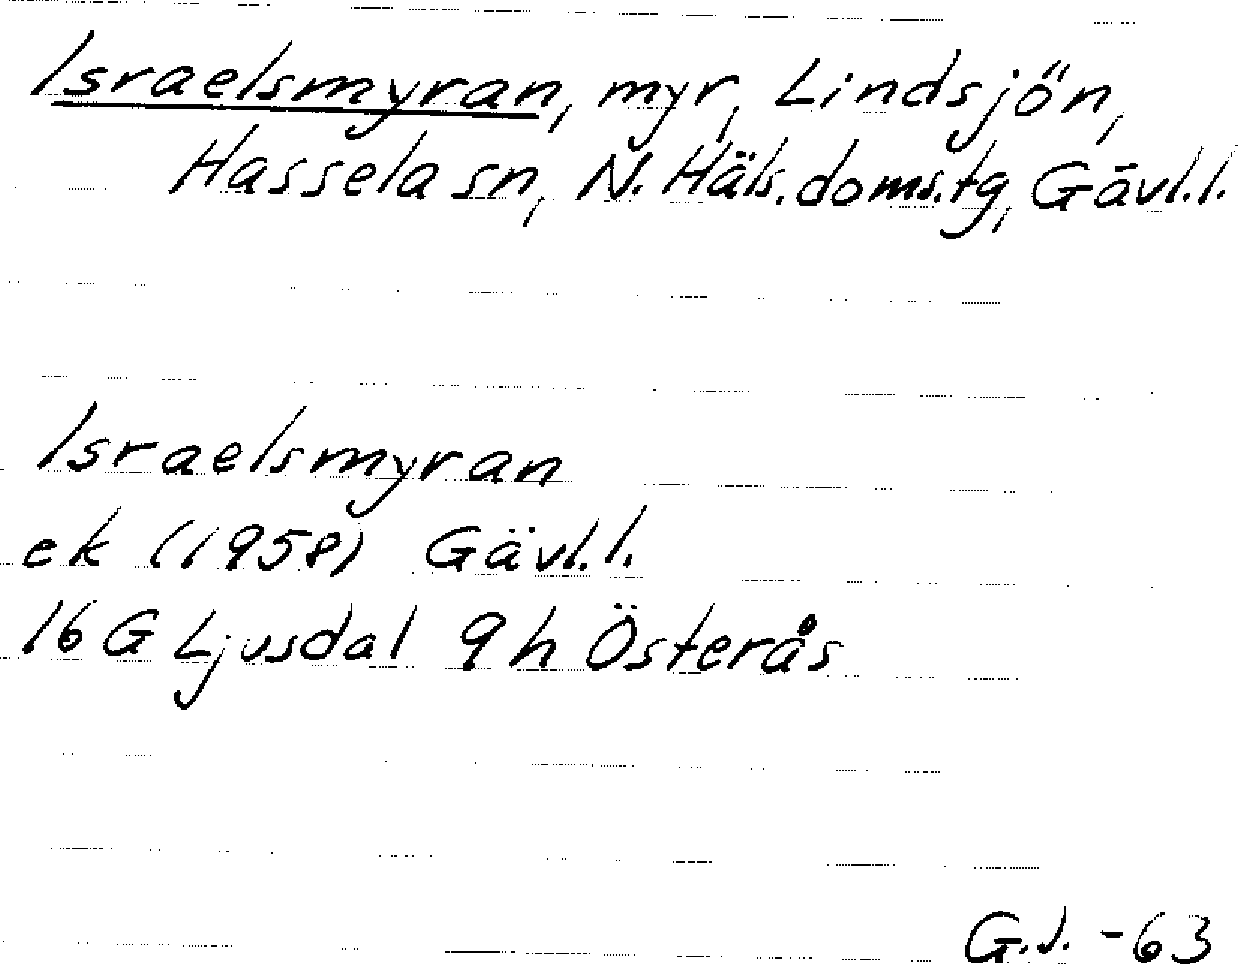 Israelsmyran, myr, Lindsjön,
Hassela sn, N. Häls. doms.tg, Gävl.l.
Israelsmyran
ek (1958) Gävl.l.
16 G Ljusdal 9h Österås
G.J. -63